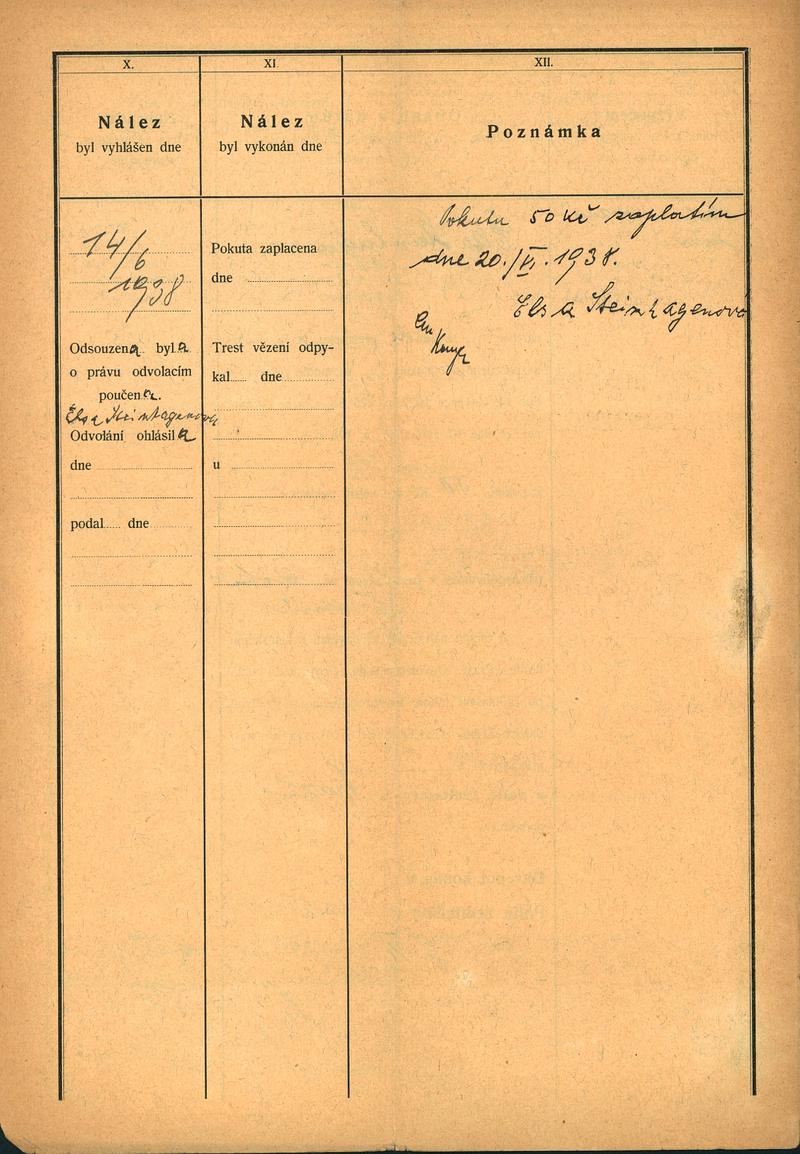 X.
Nález
byl vyhlášen dne
14/6
1938
Odsouzena byla
o právu odvolacím
poučena.
Elsa Steinhagenová
Odvolání ohlásila
dne
podal...... dne
XI.
Nález
byl vykonán dne
Pokuta zaplacena
dne
Trest vězení odpy-
kal...... dne
u
XII.
Poznámka
Pokutu 50 Kč zaplatím
dne 20./VI. 1938.
Elsa Steinhagenová